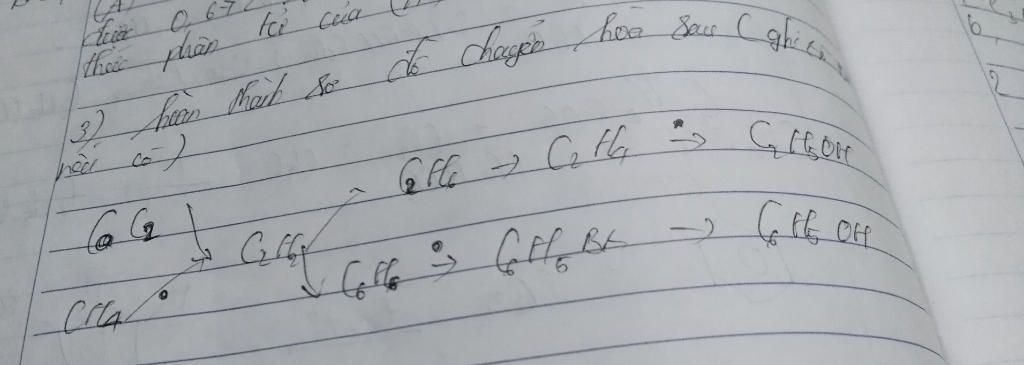 (A)
thức phân tử của
3) hoàn thành sơ đồ chuyển hoá sau (ghi
nếu có)
C2H6 → C2H4 → C2H5OH
CaC2
C2H2
C6H6 → C6H5Br → C6H5OH
CH4
6,
2